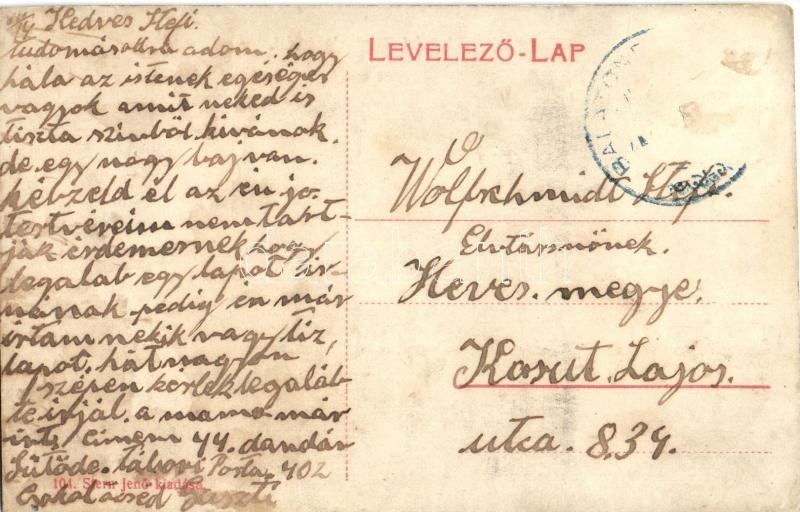 Kedves Stefi.
tudomásodra adom, hogy
hála az istenek egéséges
vagyok amit neked is
tiszta szivből kivánok.
de egy nagy baj van.
kébzeld el az én jo
testvéreim nem tart-
ják érdemesnek hogy
legaláb egy lapot ir-
nának pedig én már
irtam nekik vagy tiz
lapot, hát nagyon
szépen kérlek legaláb
te irjál, a mama már
irt, Cimem 44. dandár
Sütőde. tábori Posta. 402
Guszti
104. Stern Jenő kiadása.
LEVELEZŐ-LAP
BALATON
Wolfschmidt Stefi.
Elvtársnőnek.
Heves. megye.
Kosut. Lajos.
utca. 839.